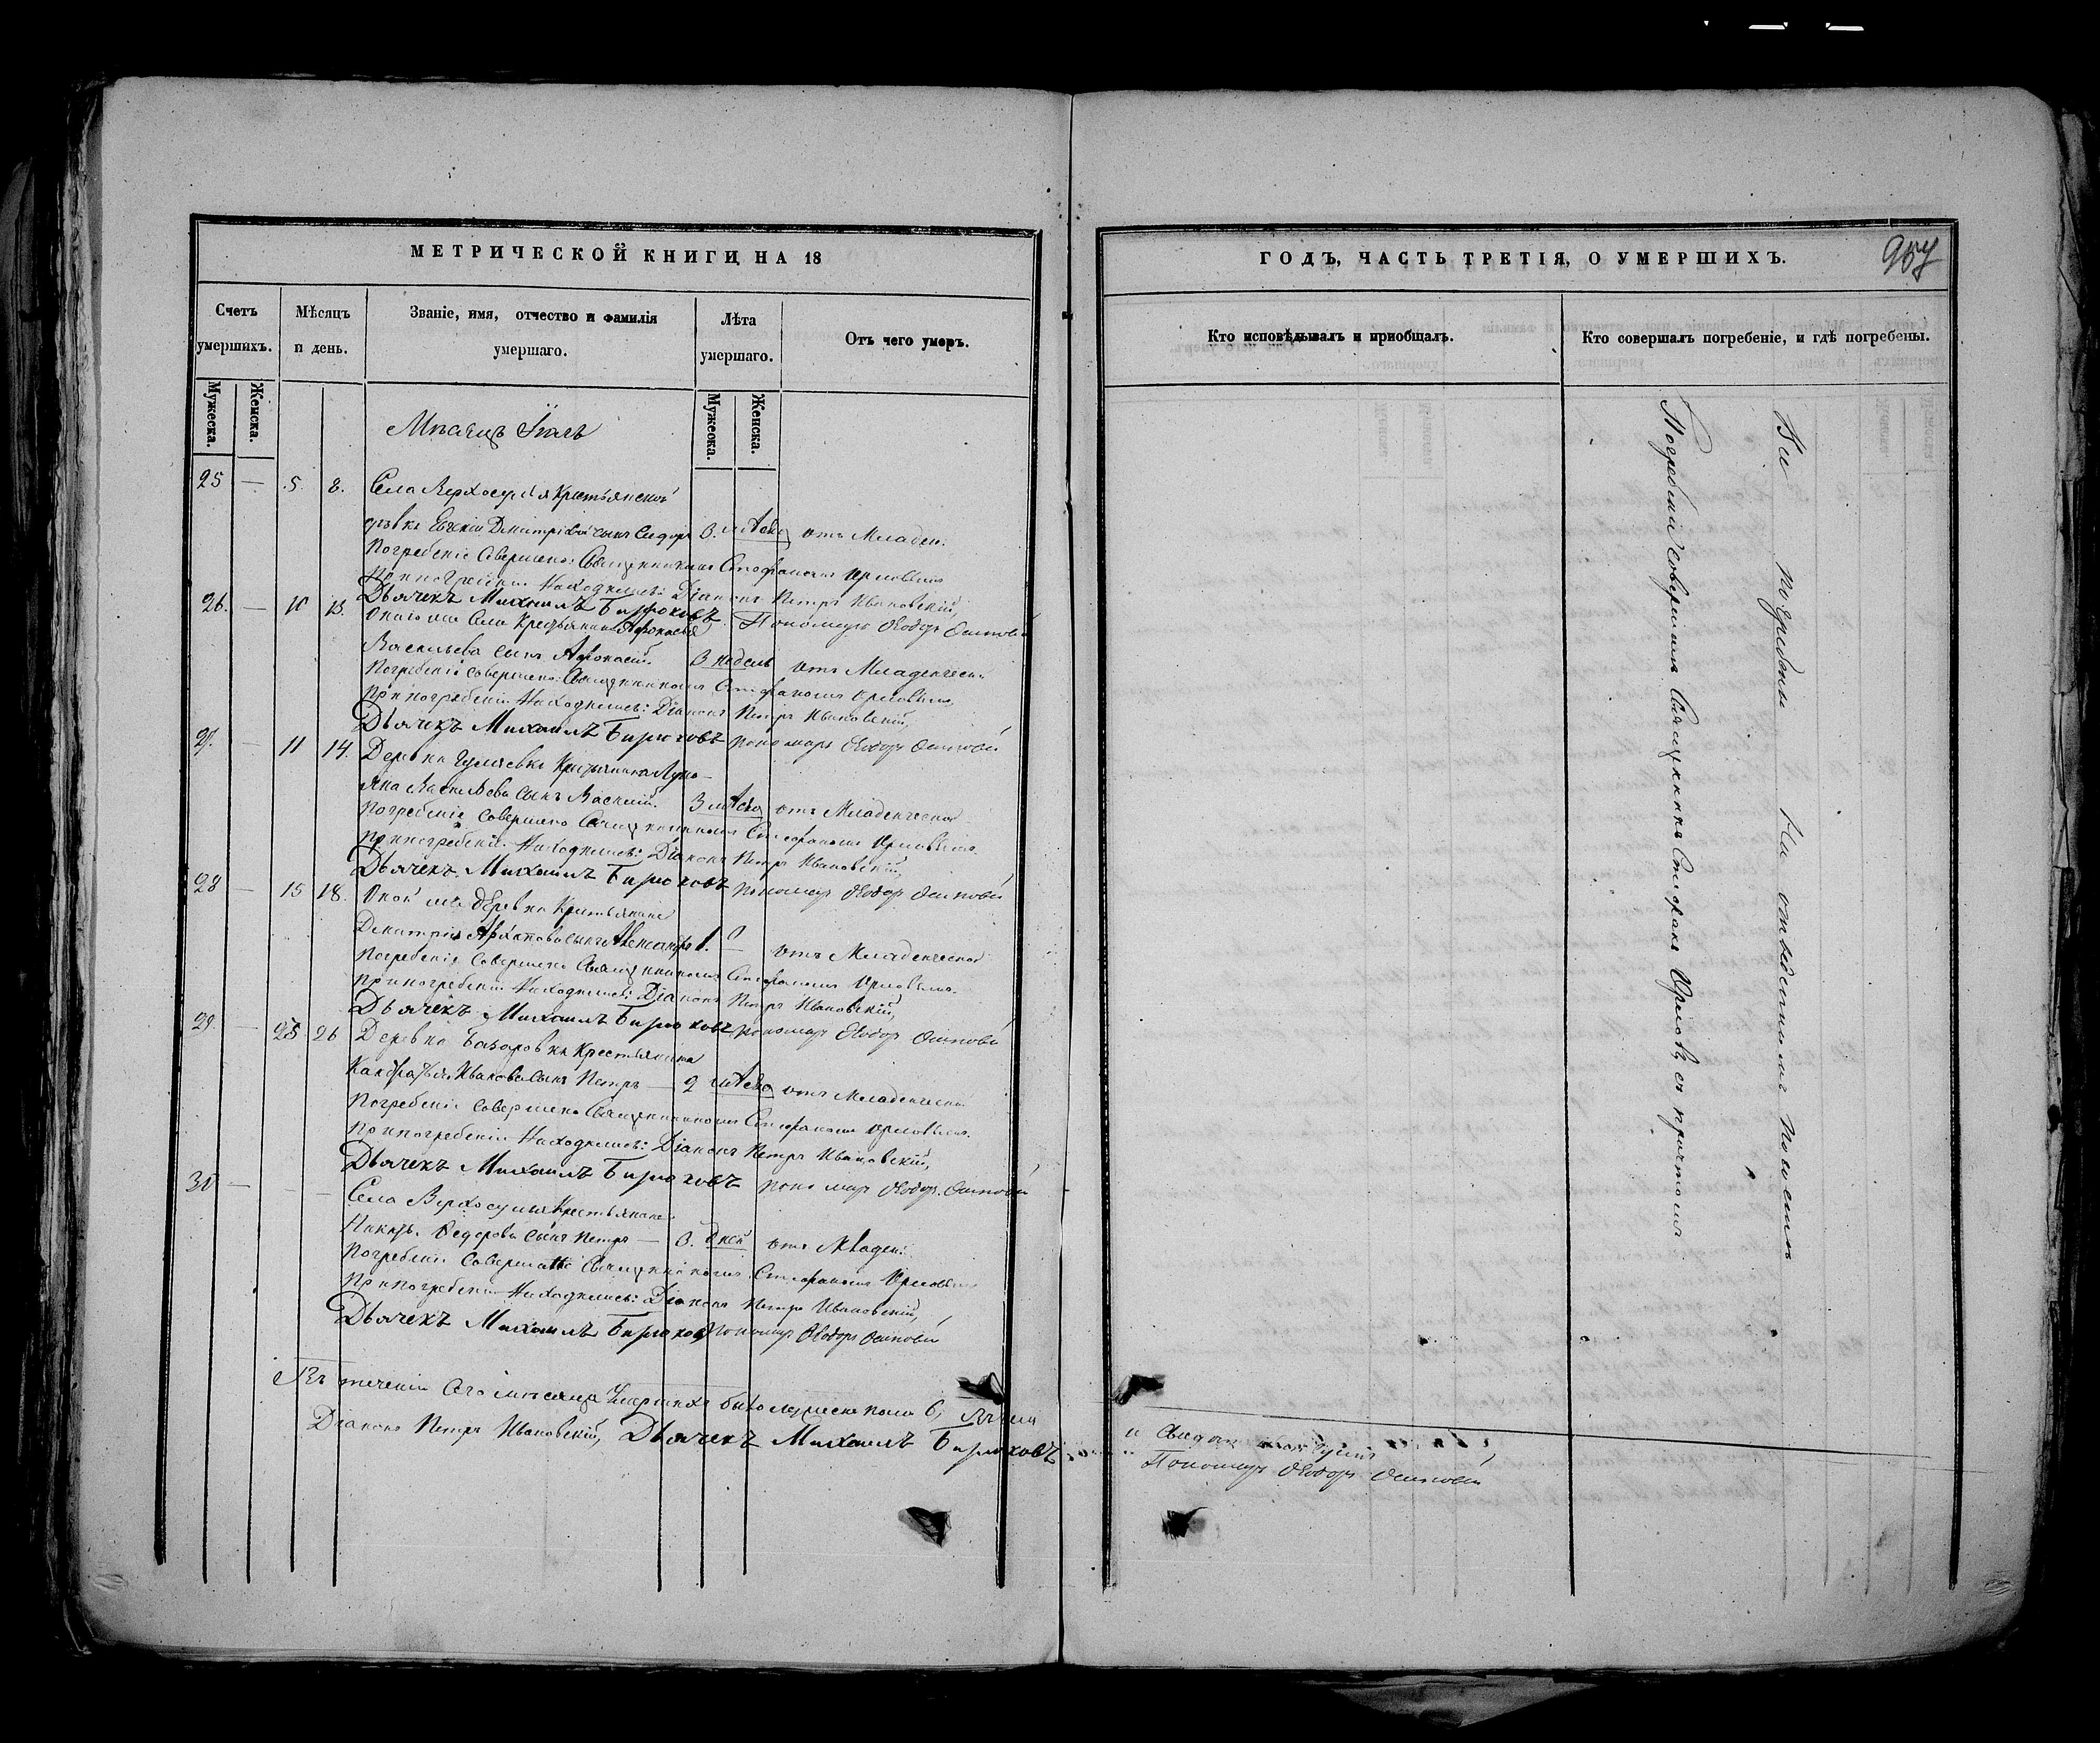 МЕТРИЧЕСКОЙ КНИГИ НА 18
Счетъ умершихъ.
Мужеска.
Женска.
Мѣсяцъ и день.
Званіе, имя, отчество и фамилія умершаго.
Лѣта умершаго.
Мужеска.
Женска.
Отъ чего умеръ.
Мѣсяцъ Іюль
25 — 5. 8. Села Верхосулья Крестьянской
дѣвки сынъ Сидоръ 3. мѣсяц отъ Младен.
Погребеніе Совершено: Священникомъ Стефаномъ Орловымъ
При погребеніи Находились: Діаконъ Петръ Ивановскій,
Дьячекъ Михаилъ Бирюковъ Пономарь Ѳеодоръ Осиповъ
26. — 10 13. Онаго же Села Крестьянина
Васильева сынъ Афонасій. 3 недель отъ Младенческ
Погребеніе совершено: Священникомъ Стефаномъ Орловымъ,
При погребеніи Находились: Діаконъ Петръ Ивановскій,
Дьячекъ Михаилъ Бирюковъ пономарь Ѳеодоръ Осиповъ
27. — 11 14. Деревни Крестьянина Лукъ-
яна Васильева сынъ Василій. 3 мѣсяц отъ Младенческой
Погребеніе Совершено Священникомъ Стефаномъ Орловымъ
При погребеніи Находились: Діаконъ Петръ Ивановскій,
Дьячекъ Михаилъ Бирюковъ пономарь Ѳеодоръ Осиповъ
28 — 15 18. Оной же деревни Крестьянина
Димитрія Архипова сынъ Александръ 1. отъ Младенческой
Погребеніе Совершено Священникомъ Стефаномъ Орловымъ.
При погребеніи Находились: Діаконъ Петръ Ивановскій,
Дьячекъ Михаилъ Бирюковъ пономарь Ѳеодоръ Осиповъ
29 — 25 26 Деревни Базаровки Крестьянина
Кандратья Иванова сынъ Петръ — 2 мѣсяц отъ Младенческ
Погребеніе Совершено Священникомъ Стефаномъ Орловымъ.
При погребеніи Находились: Діаконъ Петръ Ивановскій,
Дьячекъ Михаилъ Бирюковъ пономарь Ѳеодоръ Осиповъ
30 — — — Села Верхосулья Крестьянина
Федорова сынъ Петръ — 3. дней отъ Младен.
Погребеніе Священникомъ Стефаномъ Орловымъ
При погребеніи Находились: Діаконъ Петръ Ивановскій,
Дьячекъ Михаилъ Бирюковъ Пономарь Ѳеодоръ Осиповъ
Въ теченіи Сего мѣсяца Умершихъ было мужеска пола 6,
Діаконъ Петръ Ивановскій, Дьячекъ Михаилъ Бирюковъ
Пономарь Ѳеодоръ Осиповъ
ГОДЪ, ЧАСТЬ ТРЕТІЯ, О УМЕРШИХЪ.
957
Кто исповѣдывалъ и пріобщалъ.
Кто совершалъ погребеніе, и гдѣ погребены.
Погребеніе совершилъ Священникъ Стефанъ Орловъ съ причтомъ
погребены На отведенномъ